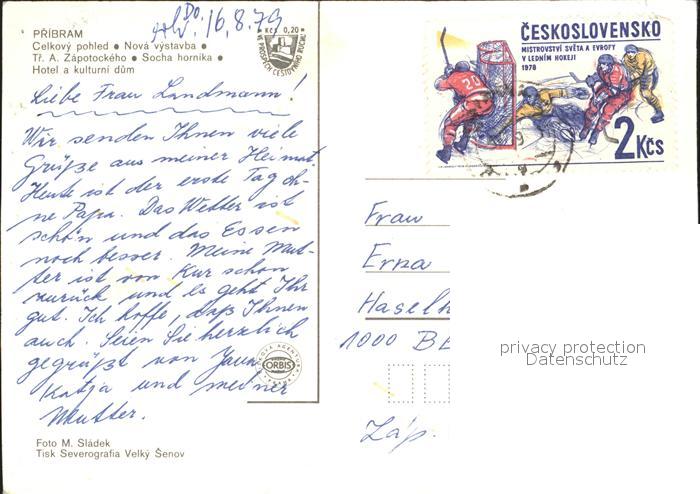 PŘÍBRAM
Celkový pohled ● Nová výstavba ●
Tř. A. Zápotockého ● Socha horníka ●
Hotel a kulturní dům
Do. 16.8.79
Kčs 0,20
VE PROSPĚCH CESTOVNÍHO RUCHU
Liebe Frau Landmann!
Wir senden Ihnen viele
Grüße aus meiner Heimat.
Heute ist der erste Tag oh-
ne Papa. Das Wetter ist
schön und das Essen
noch besser. Meine Mut-
ter ist von Kur schon
zurück und es geht Ihr
gut. Ich hoffe, daß Ihnen
auch. Seien Sie herzlich
gegrüßt von Jana
Katja und meiner
Mutter.
ORBIS
Foto M. Sládek
Tisk Severografia Velký Šenov
ČESKOSLOVENSKO
MISTROVSTVÍ SVĚTA A EVROPY
V LEDNÍM HOKEJI
1978
20
2 Kčs
Frau
Erna
Haselh
1000 BE
privacy protection
Datenschutz
Záp.